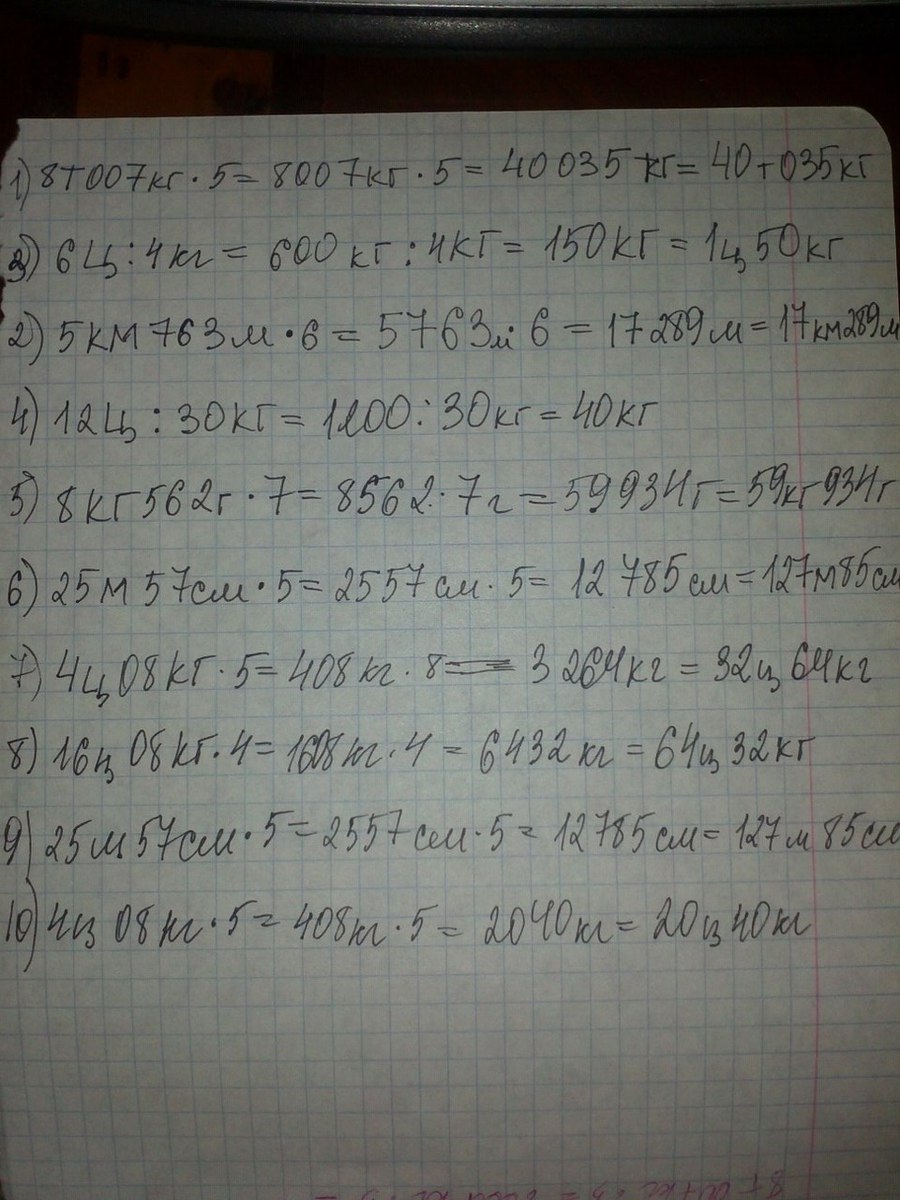 1) 8т 007кг · 5 = 8007кг · 5 = 40 035 кг = 40т 035кг
3) 6ц : 4кг = 600 кг : 4кг = 150кг = 1ц 50кг
2) 5км 763м · 6 = 5763м · 6 = 17 289м = 17км 289м
4) 12ц : 30кг = 1200 : 30кг = 40кг
5) 8кг 562г · 7 = 8562 · 7г = 59934г = 59кг 934г
6) 25м 57см · 5 = 2557см · 5 = 12 785см = 127м 85см
7) 4ц 08кг · 5 = 408кг · 8 = 3 264кг = 32ц 64кг
8) 16ц 08кг · 4 = 1608кг · 4 = 6432кг = 64ц 32кг
9) 25м 57см · 5 = 2557см · 5 = 12785см = 127м 85см
10) 4ц 08кг · 5 = 408кг · 5 = 2040кг = 20ц 40кг